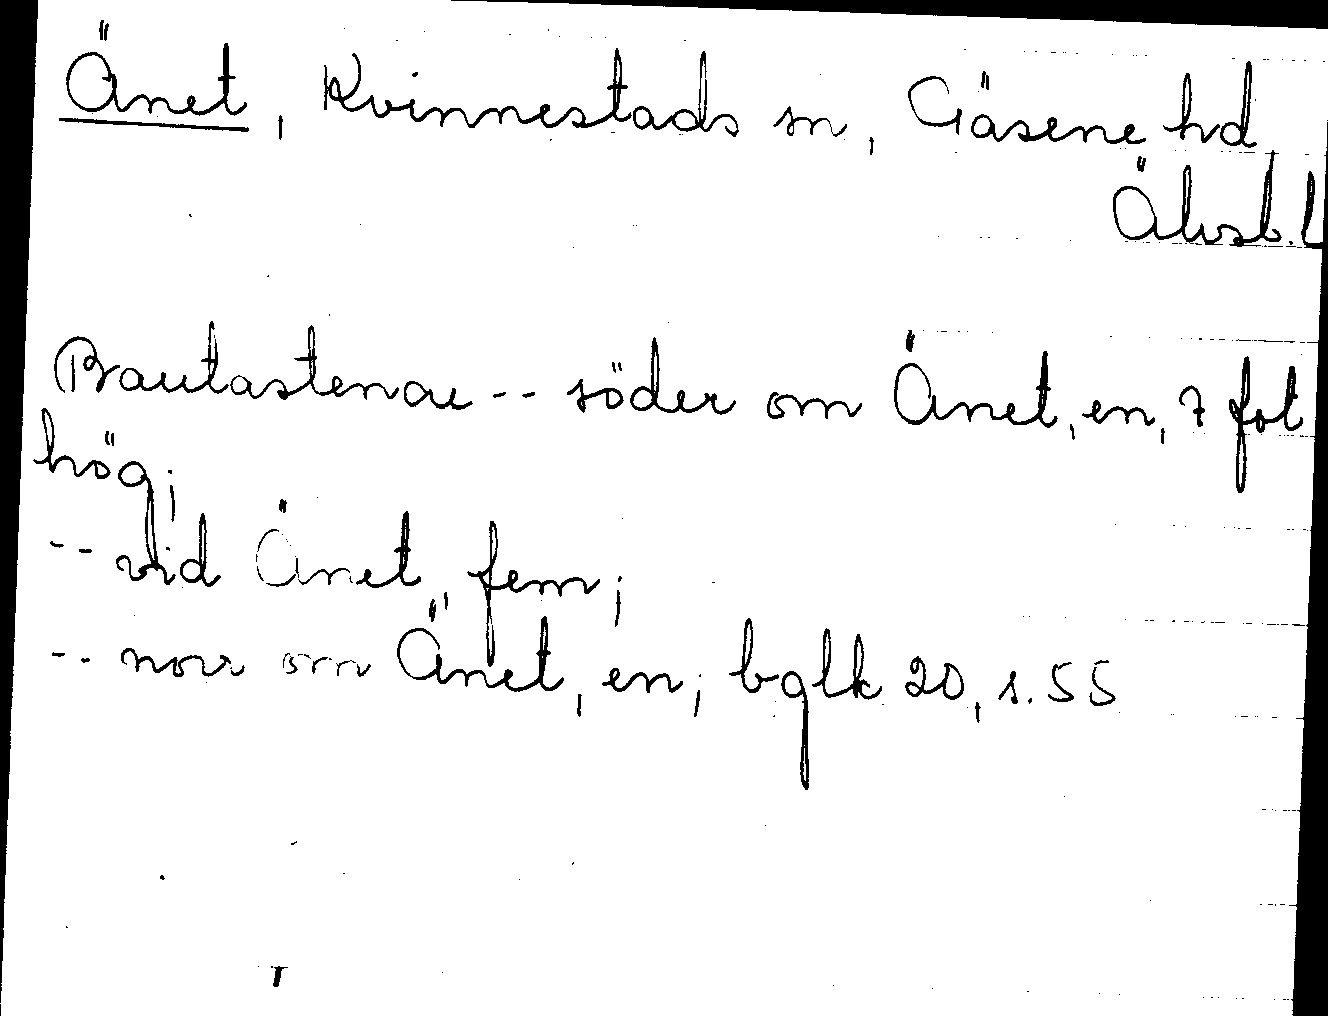 Änet, Kvinnestads sn, Gäsene hd,
Älvsb. l
Bautastenar -- söder om Änet, en, 7 fot
hög;
-- vid Änet, fem;
-- norr om Änet, en; bglk 20, s. 55